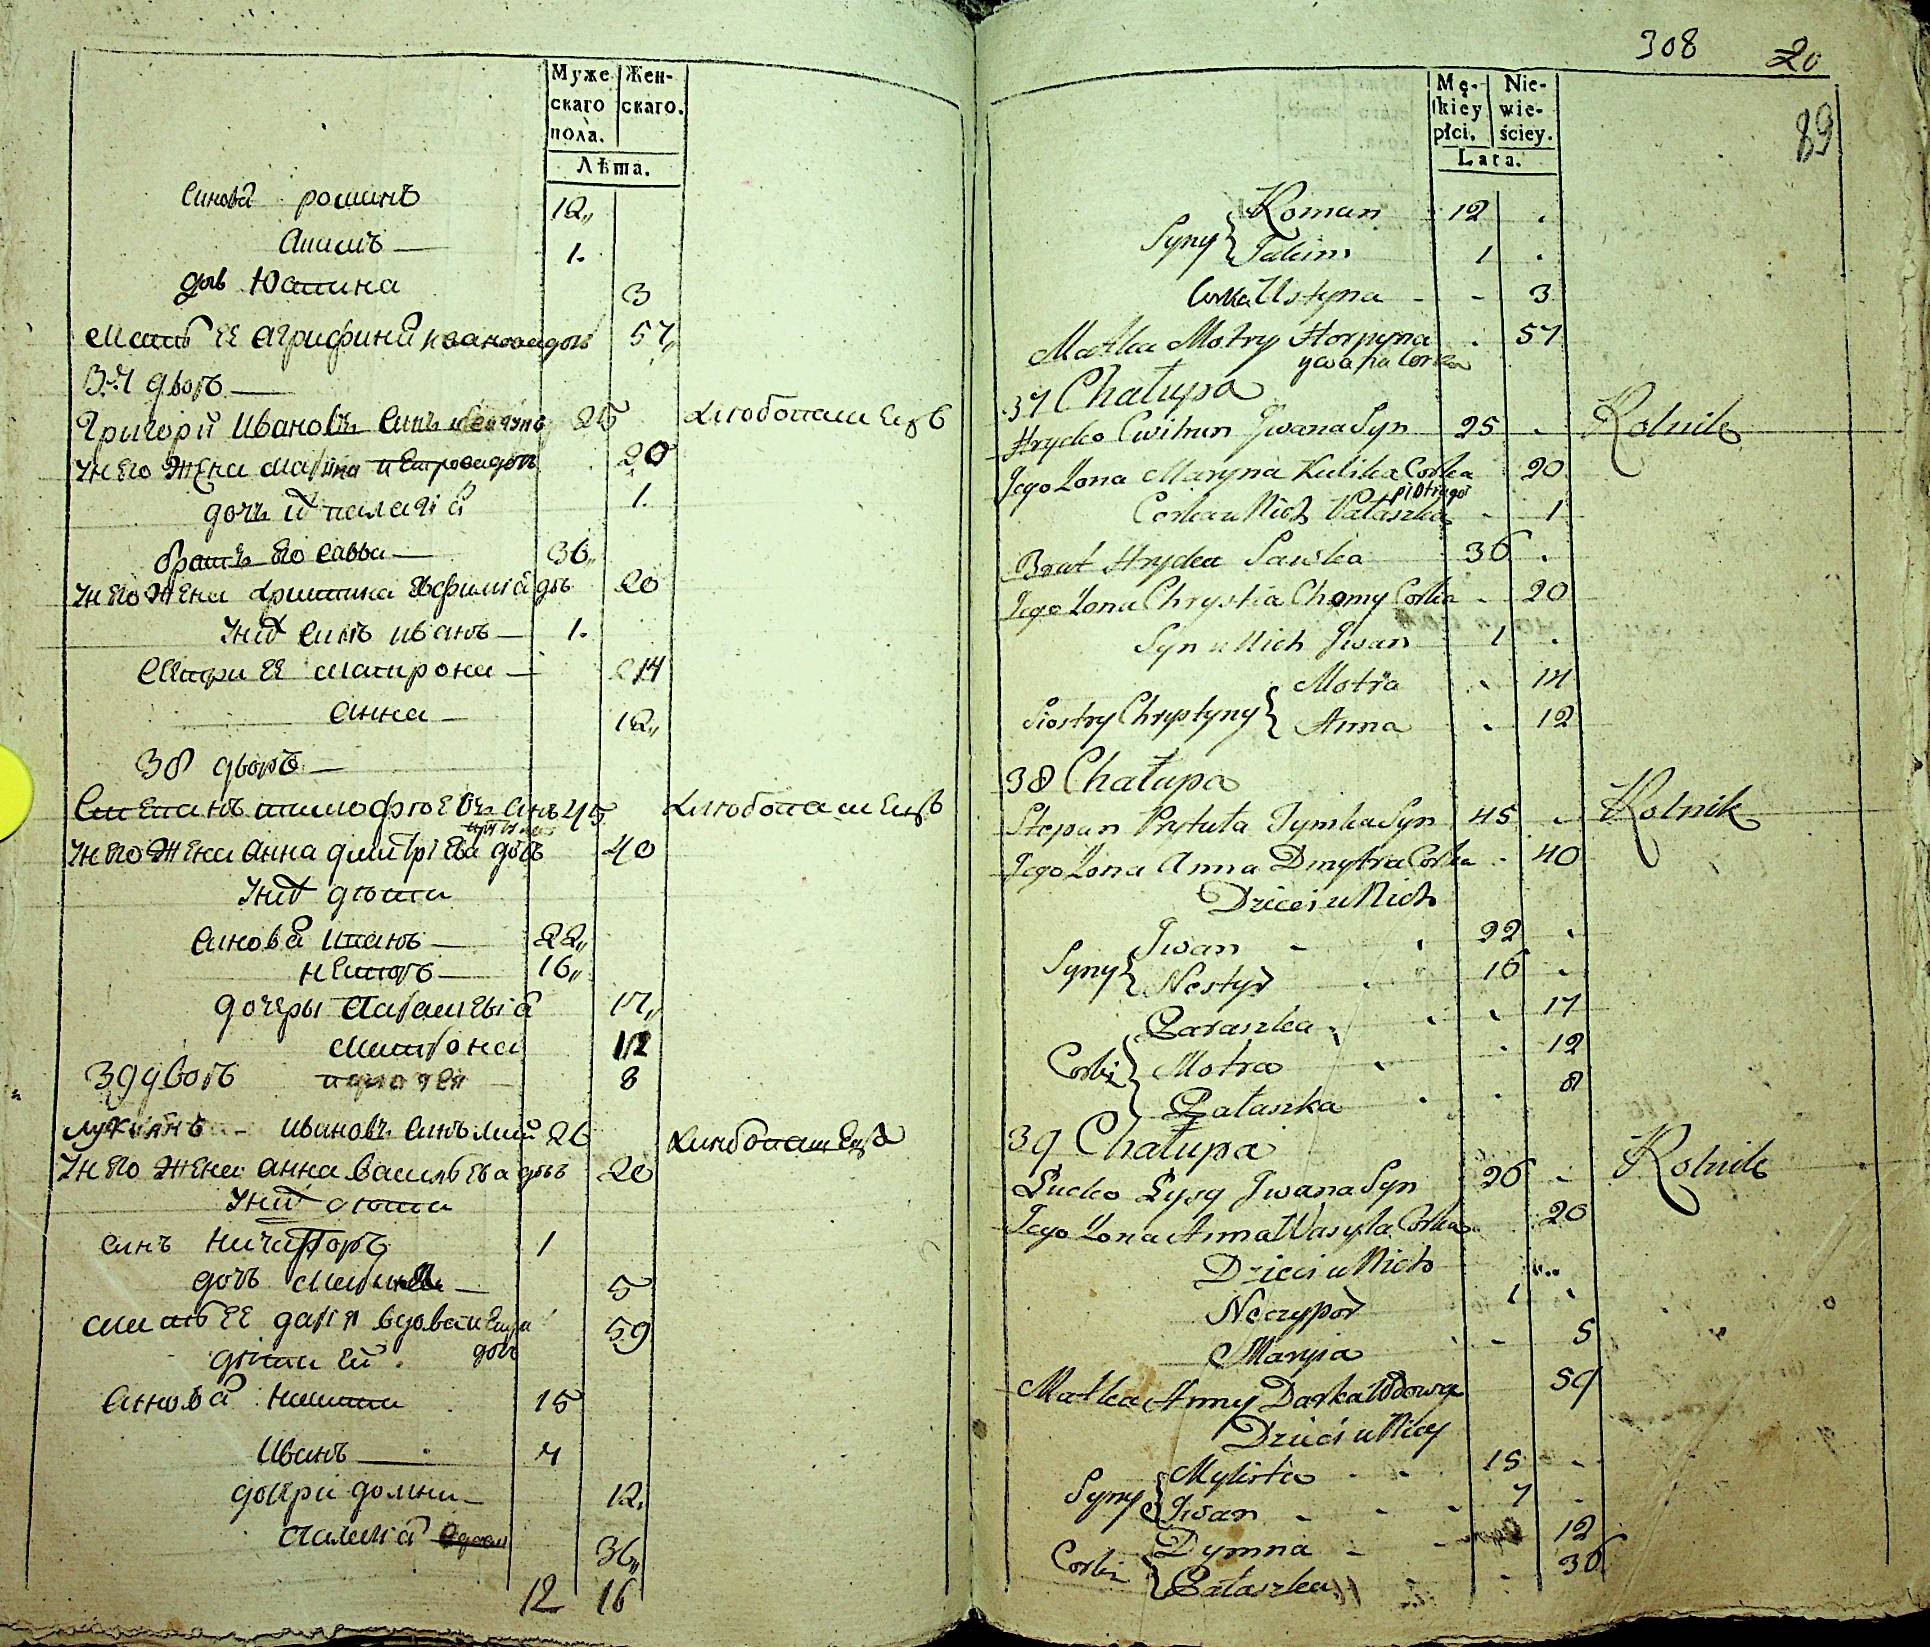 Муже
скаго
пола.
Жен-
скаго.
Лѣта.
Синовя роминъ 12,,
Акимъ 1.
дочь Юстина 3
Мать ее агрифина ивановадочь 57,,
37 дворъ
Григори Ивановъ Синъ 25 Хлюбопашецъ
У него жена Марина петровадочь 20
дочь их палагія 1.
братъ его савва 36,,
У него жена христина Яфиміа дочь 20
У них синъ иванъ 1.
Сестри ее матрона 14
анна 12,,
38 дворъ
Степанъ тимофеевъ синъ 45 Хлюбопашецъ
У него жена анна дмитріева дочь 40
У них дѣти
синовя иванъ 22,,
несторъ 16,,
дочери Парасковія 17,,
матрона 12
39 дворъ 8
Лукиянъ ивановъ синъ 26 Хлюбопашецъ
У него жена анна васильева дочь 20
У них дѣти
синъ ничипоръ 1
дочь 5
мать ее дария вдова 59
дочь
дѣти ей
синовя никита 15
Иванъ 7
дочери домна 12,
палагія 36,,
12 16
308 20
89
Mę-
skiey
płci.
Nie-
wie-
ściey.
Lata.
Syny { Roman 12 .
Jakim 1 .
Corka Ustyna - - 3
Matka Motry Horpyna . 57
Jwana Corka
37 Chałupa
Hryćko Cwihun Jwana Syn 25 . Rolnik
Jego Zona Maryna Kulika Corka 20
piotrago
Corka u Nich Pałaszka - 1
Brat Hryćka Sawka 36 .
Jego Zona Chrystia Chomy Corka - 20
Syn u Nich Jwan 1 .
Siostry Chrystyny { Motra . 14
Anna . 12
38 Chałupa
Stepan Prytuła Tymka Syn 45 . Rolnik
Jego Zona Anna Dmytra Corka . 40
Dzieci u Nich
Syny { Jwan - . 22 .
Nestyr . 16 .
Corki { Paraszka . . 17
Motra . . 12
Pałaszka . . 8
39 Chałupa
Łucko Łysy Jwana Syn 26 . Rolnik
Jego Zona Anna Wasyla Corka 20
Dzieci u Nich
Neczypor 1 .
Maryia - 5
Matka Anny Darka Wdowa 59
Dzieci u Niey
Syny { Mykita - - 15 -
Jwan - - 7 -
Corki { Dymna - - 12
Pałaszka - 36